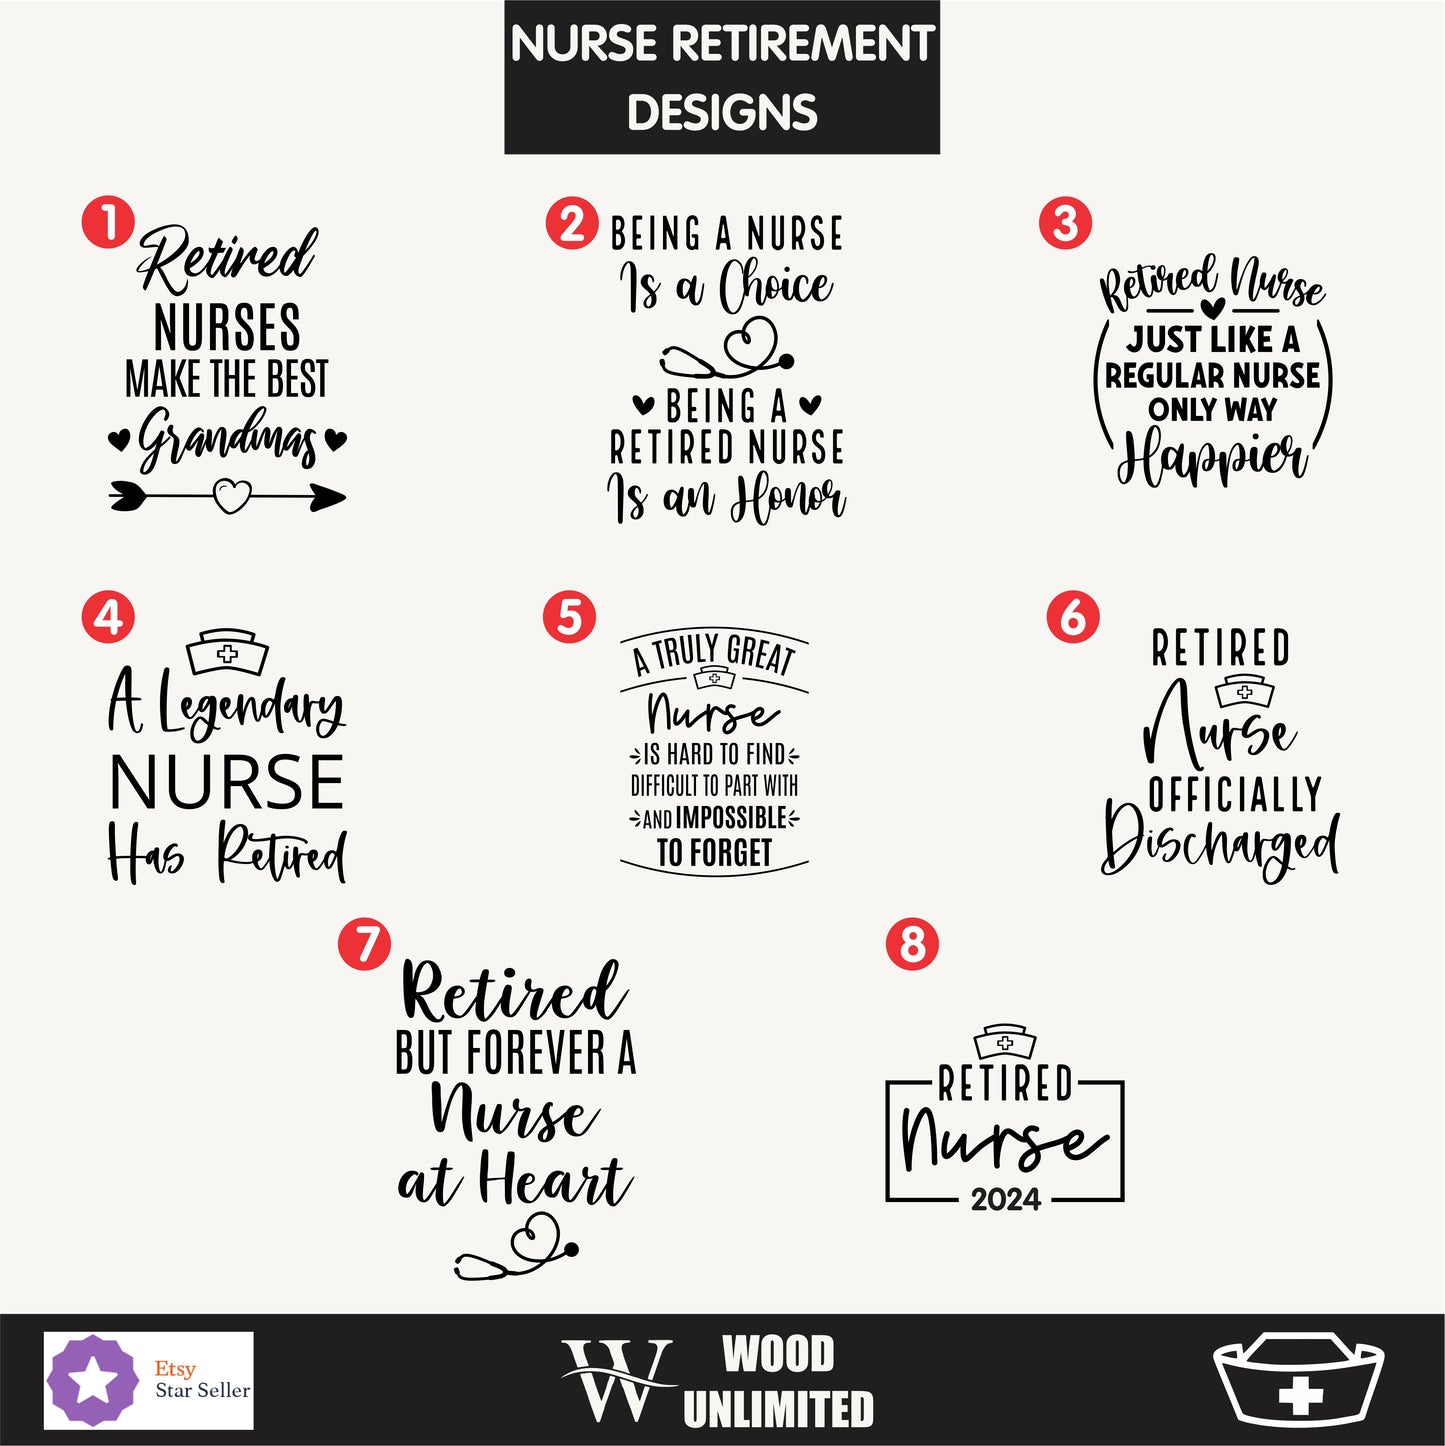 NURSE RETIREMENT
DESIGNS
1
Retired
NURSES
MAKE THE BEST
Grandmas
2
BEING A NURSE
Is a Choice
BEING A
RETIRED NURSE
Is an Honor
3
Retired Nurse
JUST LIKE A
REGULAR NURSE
ONLY WAY
Happier
4
A Legendary
NURSE
Has Retired
5
A TRULY GREAT
Nurse
IS HARD TO FIND
DIFFICULT TO PART WITH
AND IMPOSSIBLE
TO FORGET
6
RETIRED
Nurse
OFFICIALLY
Discharged
7
Retired
BUT FOREVER A
Nurse
at Heart
8
RETIRED
Nurse
2024
Etsy
Star Seller
W
WOOD
UNLIMITED